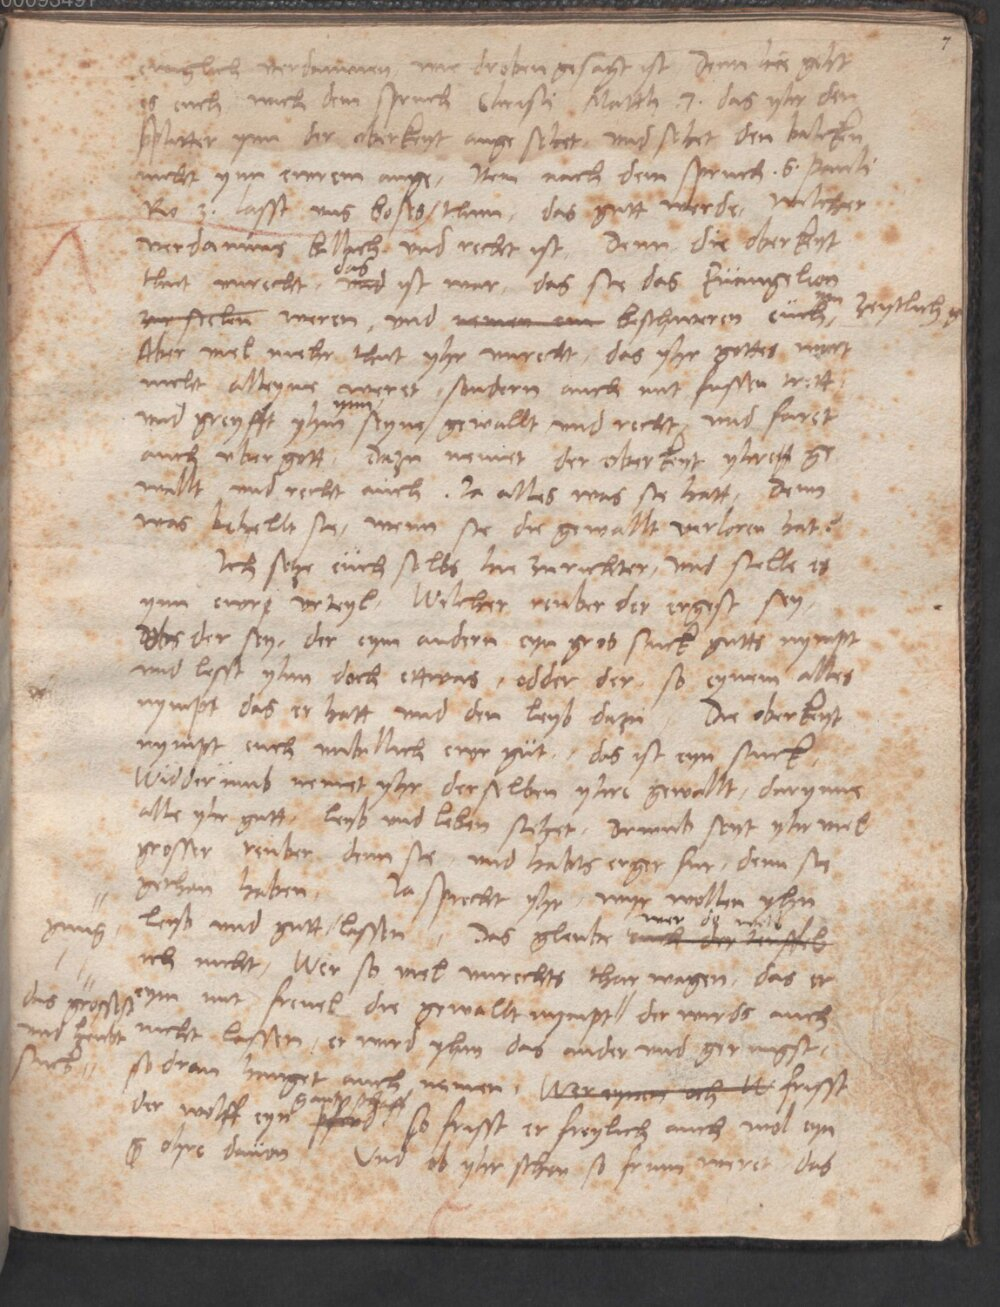 7
ewiglich verdamnen, wie droben gesagt ist, Denn hie geht
es euch nach dem spruch Christi Matth .7. das yhr den
splitter ynn der oberkeyt auge sehet, und sehet den balcken
nicht ynn ewrem auge, Item nach dem spruch .S. Pauli
Ro 3. lasst uns boses thun, das gutt werde, wilcher
verdamnis billich und recht ist, Denn die oberkeyt
thut unrecht, das ist war, das sie das Euangelion
weren, und beschweren euch ym zeytlich g
Aber viel mehr thut yhr unrecht, das yhr gottes wort
nicht alleyne weret, sondern auch mit fussen trett,
und greyfft yhm ynn seyne gewallt und recht, und faret
auch uber gott, Dazu nemet der oberkeyt yhre ge
wallt und recht auch. Ja alles was sie hatt, Denn
was behellt sie, wenn sie die gewallt verloren hat?
Ich setze euch selbs hie zu richter, und stelle es
ynn ewre urteyl, Wilcher reuber der ergest sey,
Obs der sey, der eym andern eyn gros stuck gutts nympt
und lesst yhm doch ettwas, odder der, so eynem alles
nympt das er hatt und den leyb dazu, Die oberkeyt
nympt euch unbillich ewr gut, das ist eyn stuck,
Widderumb nemet yhr der selben yhre gewallt, darynne
alle yhr gutt, leyb und leben stehet, Drumb seyt yhr viel
grosser reuber denn sie, und habts erger fur, denn sie
gethan haben, Ja sprecht yhr, wyr wollen yhn
leyb und gutt gnug lassen, Das gleube wer do will
ich nicht, Wer so viel unrechts thar wagen, das er
eym mit frevel die gewallt nympt das grossest und heubt stuck der wirds auch
nicht lassen, er wird yhm das ander und geringst,
so dran hanget auch nemen, frisst
der wolff eyn gantz schaff so frisst er freylich auch wol eyn
ohre davon Und ob yhr schon so frum weret das